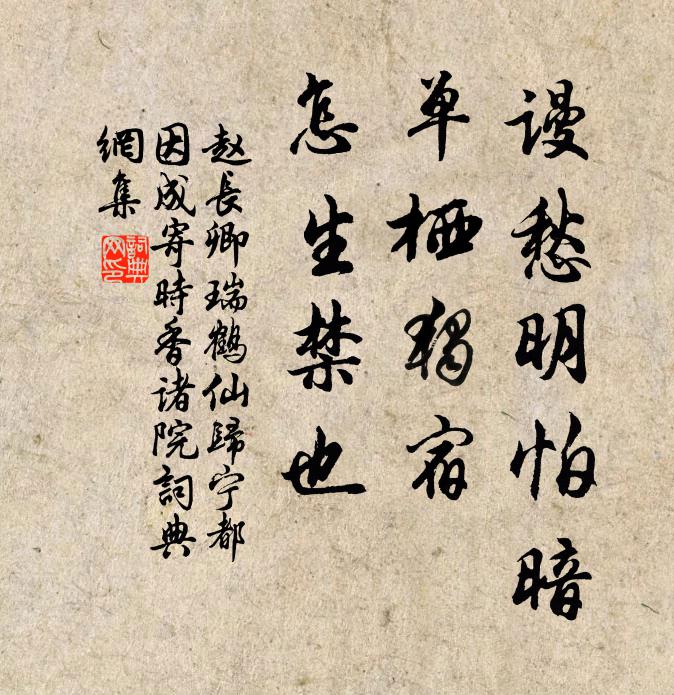 谩愁明怕暗
单栖独宿
怎生禁也
赵長卿瑞鶴仙歸宁都
因成寄時香诸院詞典
網集
詞典
网印